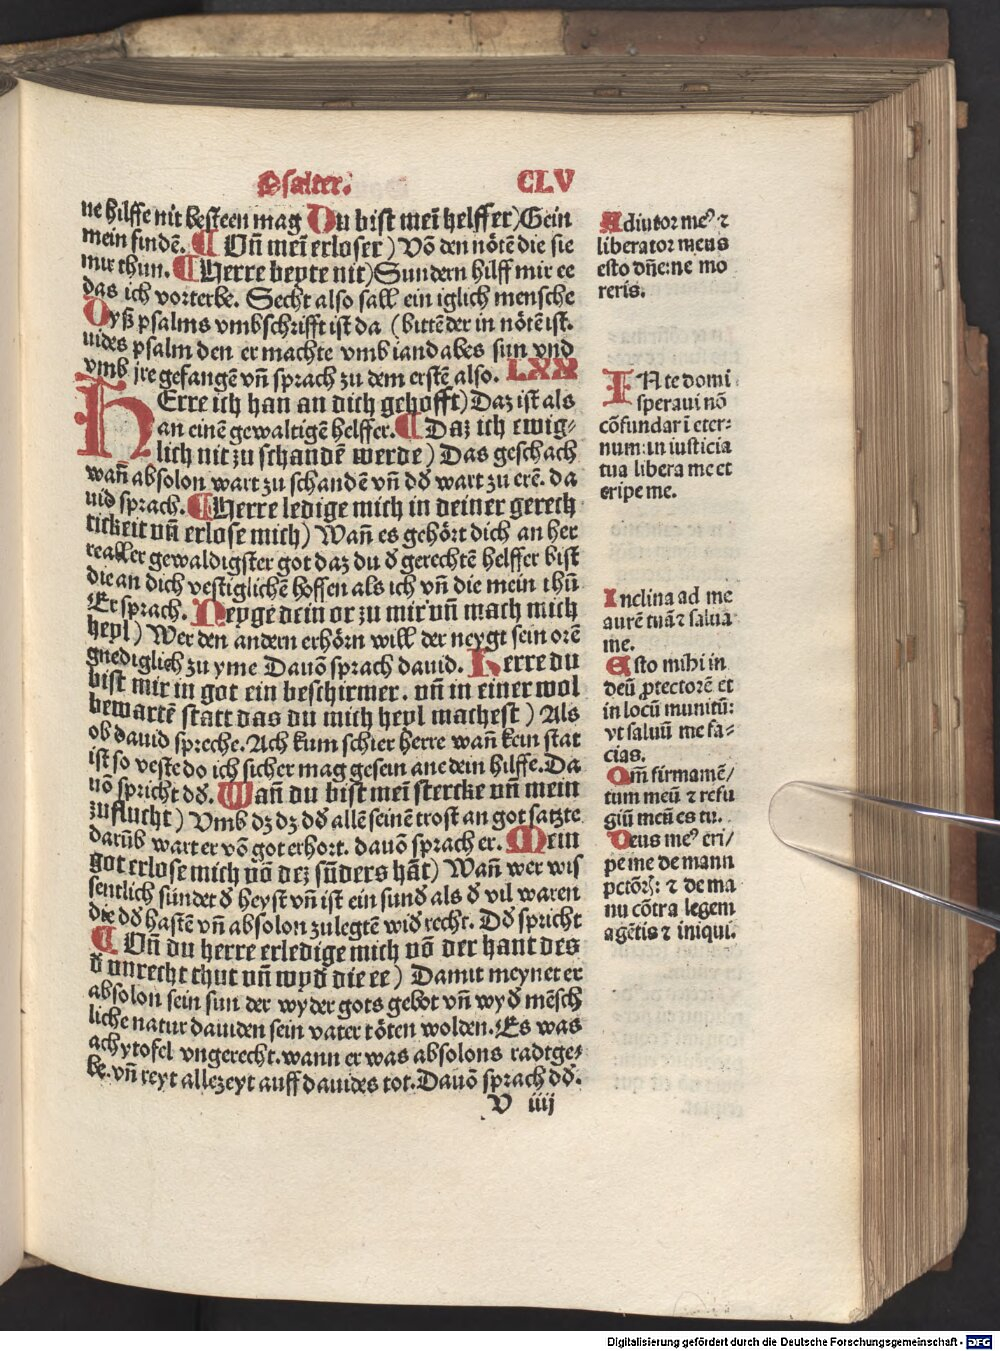 Psalter. CLV
ne hilffe nit besteen mag Du bist mei helffer) Gein
mein findē. Vñ mei erloser) Vō den nötē die sie
mir thun. Herre beyte nit) Sundern hilff mir ee
das ich vorterbe. Secht also sall ein iglich mensche
Dyß psalms vmbschrifft ist da (bittē der in nötē ist.
uides psalm den er machte vmb iandabes sun vnd
vmb jre gefangē vñ sprach zu dem erstē also. LXX
HErre ich han an dich gehofft) Daz ist als
an einē gewaltigē helffer. Daz ich ewig⸗
lich nit zu schandē werde) Das geschach
wañ absolon wart zu schandē vñ dđ wart zu erē. da
uid sprach. Herre ledige mich in deiner gerech
tickeit vñ erlose mich) Wañ es gehört dich an her
re aller gewaldigster got daz du đ gerechtē helffer bist
die an dich vestiglichē hoffen als ich vñ die mein thū
Er sprach. Neyge dein or zu mir vñ mach mich
heyl) Wer den andern erhörn will der neygt sein orē
gnediglich zu yme Dauō sprach dauid. Herre du
bist mir in got ein beschirmer. vñ in einer wol
bewartē statt das du mich heyl machest) Als
ob dauid spreche. Ach kum schier herre wañ kein stat
ist so veste do ich sicher mag gesein ane dein hilffe. Da
uō spricht dđ. Wañ du bist mei stercke vñ mein
zuflucht) Vmb dz dz dđ allē seinē trost an got satzte
darūb wart er vō got erhort. dauō sprach er. Mein
got erlose mich vō dez sūders hāt) Wañ wer wis
sentlich sündet đ heyst vñ ist ein sund als đ vil waren
die dđ hastē vñ absolon zulegtē wiđ recht. Dđ spricht
Vñ du herre erledige mich vō der hant des
đ vnrecht thut vñ wyđ die ee) Damit meynet er
absolon sein sun der wyder gots gebot vñ wyđ mēsch
liche natur dauiden sein vater töten wolden. Es was
achytofel vngerecht. wann er was absolons radtge⸗
be. vñ reyt allezeyt auff dauides tot. Dauō sprach dđ.
V iiij
Adiutor meꝰ ⁊
liberator meus
esto dñe: ne mo
reris.
IN te domi
speraui nō
cōfundar ī eter⸗
num: in iusticia
tua libera me et
eripe me.
Inclina ad me
aurē tuā ⁊ salua
me.
Esto mihi in
deū ꝓtectorē et
in locū munitū:
vt saluū me fa⸗
cias.
Qm̄ firmamē/
tum meū ⁊ refu
giū meū es tu.
Deus meꝰ eri/
pe me de mann
pctōrꝭ: ⁊ de ma
nu cōtra legem
agētis ⁊ iniqui.
Digitalisierung gefördert durch die Deutsche Forschungsgemeinschaft - DFG